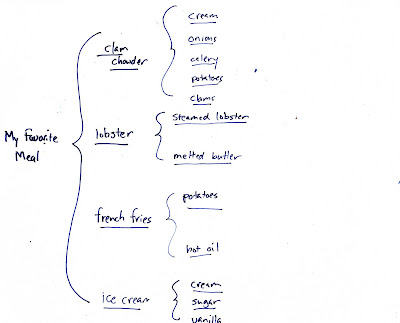 cream
onions
clam
chowder
celery
potatoes
clams
steamed lobster
My Favorite
Meal
lobster
melted butter
potatoes
french fries
hot oil
cream
ice cream
sugar
vanilla